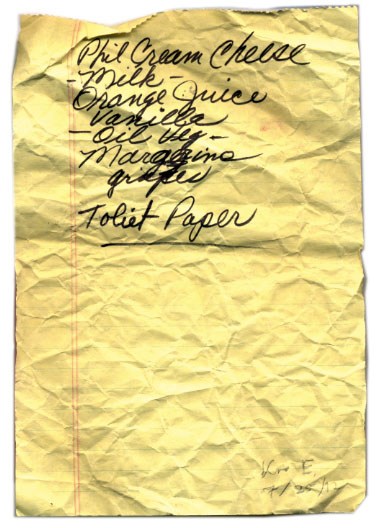 Phil Cream Cheese
- Milk -
Orange Juice
Vanilla
- Oil Veg -
Margarine
grapes
Toliet Paper
E.